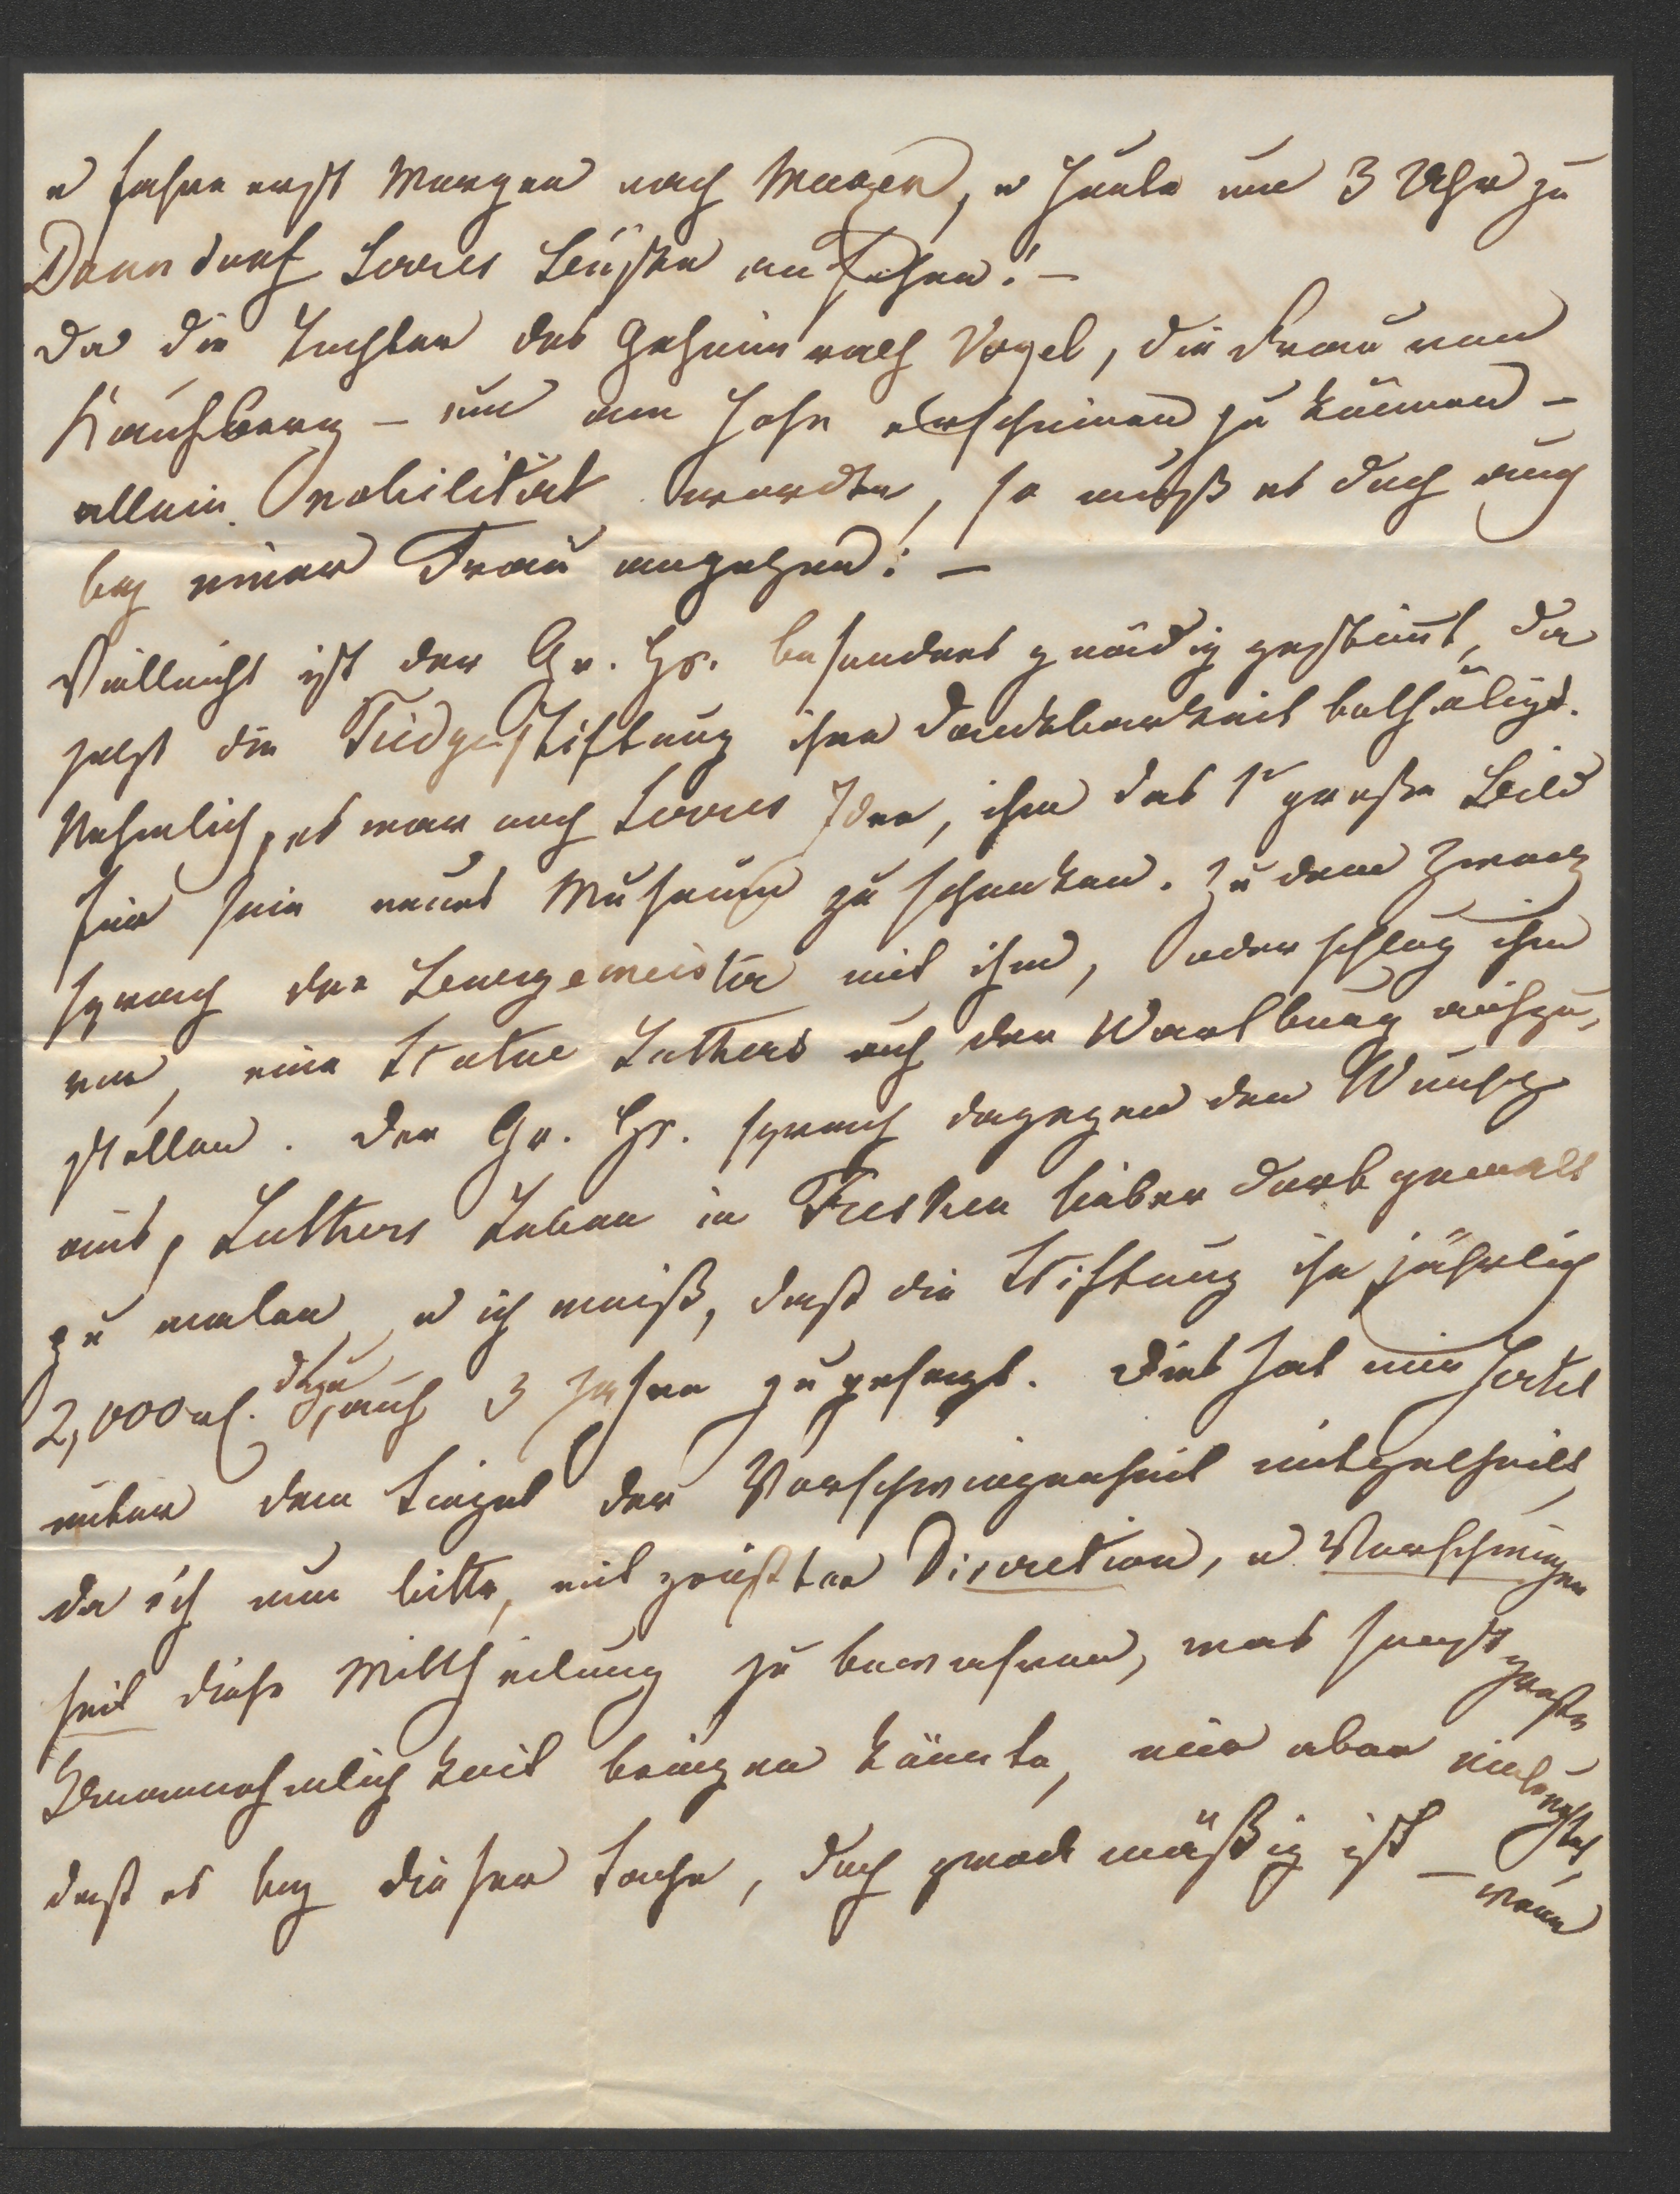 u fahre erst Morgen nach Maxen, u Heute um 3 Uhr zu
Donndorf Serres Büste an sehen! –
Da die Tochter des Geheimrath Vogel, die Frau von
– um am Hofe erscheinen zu können –
allein nobilitirt wurde, so muß es doch auch
bey einer Frau angehen! –
Vielleicht ist der Gr. Hr. besonders gnädig gestimmt, da
jetzt die Tiedgestiftung ihre Dankbarkeit bethätigt.
Nehmlich, es war noch Serres Idee, ihm das 1r große Bild
für sein neues Museum zu schenken. Zu dem Zweck
sprach der Bürgemeister mit ihm, oder schlug ihm
vor, eine Statue Luthers auf der Wartburg aufzu,
stellen. Der Gr. Hr. sprach dagegen den Wunsch
aus, Luthers Leben in Fresken lieber dort gemalt
zu malen u ich weiß, daß die Stiftung ihr jährlich
2,000 rl. dazu, auf 3 Jahre zugesagt. Dies hat mir
unter dem Siegel der Verschwiegenheit mitgetheilt,
da ich nun bitte, mit größter Discretion, u Verschwiegen
heit diese Mittheilung zu bewahren, was sonst große
Unannehmlichkeit bringen könnte, mir aber
daß es bey dieser Sache, doch zweckmäßig ist – wenn